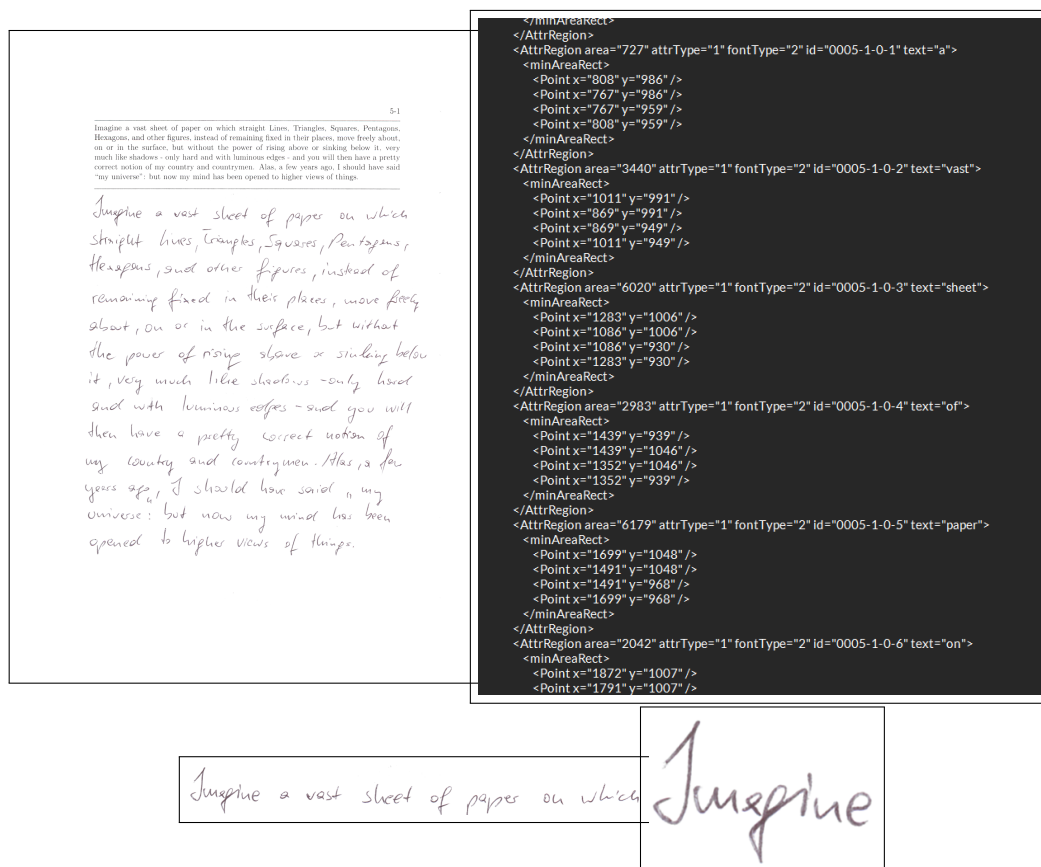 5-1
Imagine a vast sheet of paper on which straight Lines, Triangles, Squares, Pentagons,
Hexagons, and other figures, instead of remaining fixed in their places, move freely about,
on or in the surface, but without the power of rising above or sinking below it, very
much like shadows - only hard and with luminous edges - and you will then have a pretty
correct notion of my country and countrymen. Alas, a few years ago, I should have said
"my universe": but now my mind has been opened to higher views of things.
Imagine a vast sheet of paper on which
straight lines, Triangles, Squares, Pentagons,
Hexagons, and other figures, instead of
remaining fixed in their places, move freely
about, on or in the surface, but without
the power of rising above or sinking below
it, very much like shadows - only hard
and with luminous edges - and you will
then have a pretty correct notion of
my country and countrymen. Alas, a few
years ago, I should have said „my
universe“: but now my mind has been
opened to higher views of things.
</minAreaRect>
</AttrRegion>
<AttrRegion area="727" attrType="1" fontType="2" id="0005-1-0-1" text="a">
<minAreaRect>
<Point x="808" y="986" />
<Point x="767" y="986" />
<Point x="767" y="959" />
<Point x="808" y="959" />
</minAreaRect>
</AttrRegion>
<AttrRegion area="3440" attrType="1" fontType="2" id="0005-1-0-2" text="vast">
<minAreaRect>
<Point x="1011" y="991" />
<Point x="869" y="991" />
<Point x="869" y="949" />
<Point x="1011" y="949" />
</minAreaRect>
</AttrRegion>
<AttrRegion area="6020" attrType="1" fontType="2" id="0005-1-0-3" text="sheet">
<minAreaRect>
<Point x="1283" y="1006" />
<Point x="1086" y="1006" />
<Point x="1086" y="930" />
<Point x="1283" y="930" />
</minAreaRect>
</AttrRegion>
<AttrRegion area="2983" attrType="1" fontType="2" id="0005-1-0-4" text="of">
<minAreaRect>
<Point x="1439" y="939" />
<Point x="1439" y="1046" />
<Point x="1352" y="1046" />
<Point x="1352" y="939" />
</minAreaRect>
</AttrRegion>
<AttrRegion area="6179" attrType="1" fontType="2" id="0005-1-0-5" text="paper">
<minAreaRect>
<Point x="1699" y="1048" />
<Point x="1491" y="1048" />
<Point x="1491" y="968" />
<Point x="1699" y="968" />
</minAreaRect>
</AttrRegion>
<AttrRegion area="2042" attrType="1" fontType="2" id="0005-1-0-6" text="on">
<minAreaRect>
<Point x="1872" y="1007" />
<Point x="1791" y="1007" />
Imagine a vast sheet of paper on which
Imagine